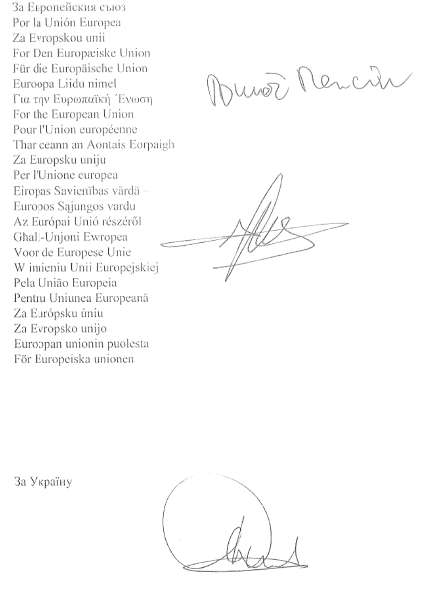 За Европейския съюз
Por la Unión Europea
Za Evropskou unii
For Den Europæiske Union
Für die Europäische Union
Euroopa Liidu nimel
Για την Ευρωπαϊκή Ένωση
For the European Union
Pour l'Union européenne
Thar ceann an Aontais Eorpaigh
Za Europsku uniju
Per l'Unione europea
Eiropas Savienības vārdā –
Europos Sąjungos vardu
Az Európai Unió részéről
Għall-Unjoni Ewropea
Voor de Europese Unie
W imieniu Unii Europejskiej
Pela União Europeia
Pentru Uniunea Europeană
Za Európsku úniu
Za Evropsko unijo
Euroopan unionin puolesta
För Europeiska unionen
За Україну